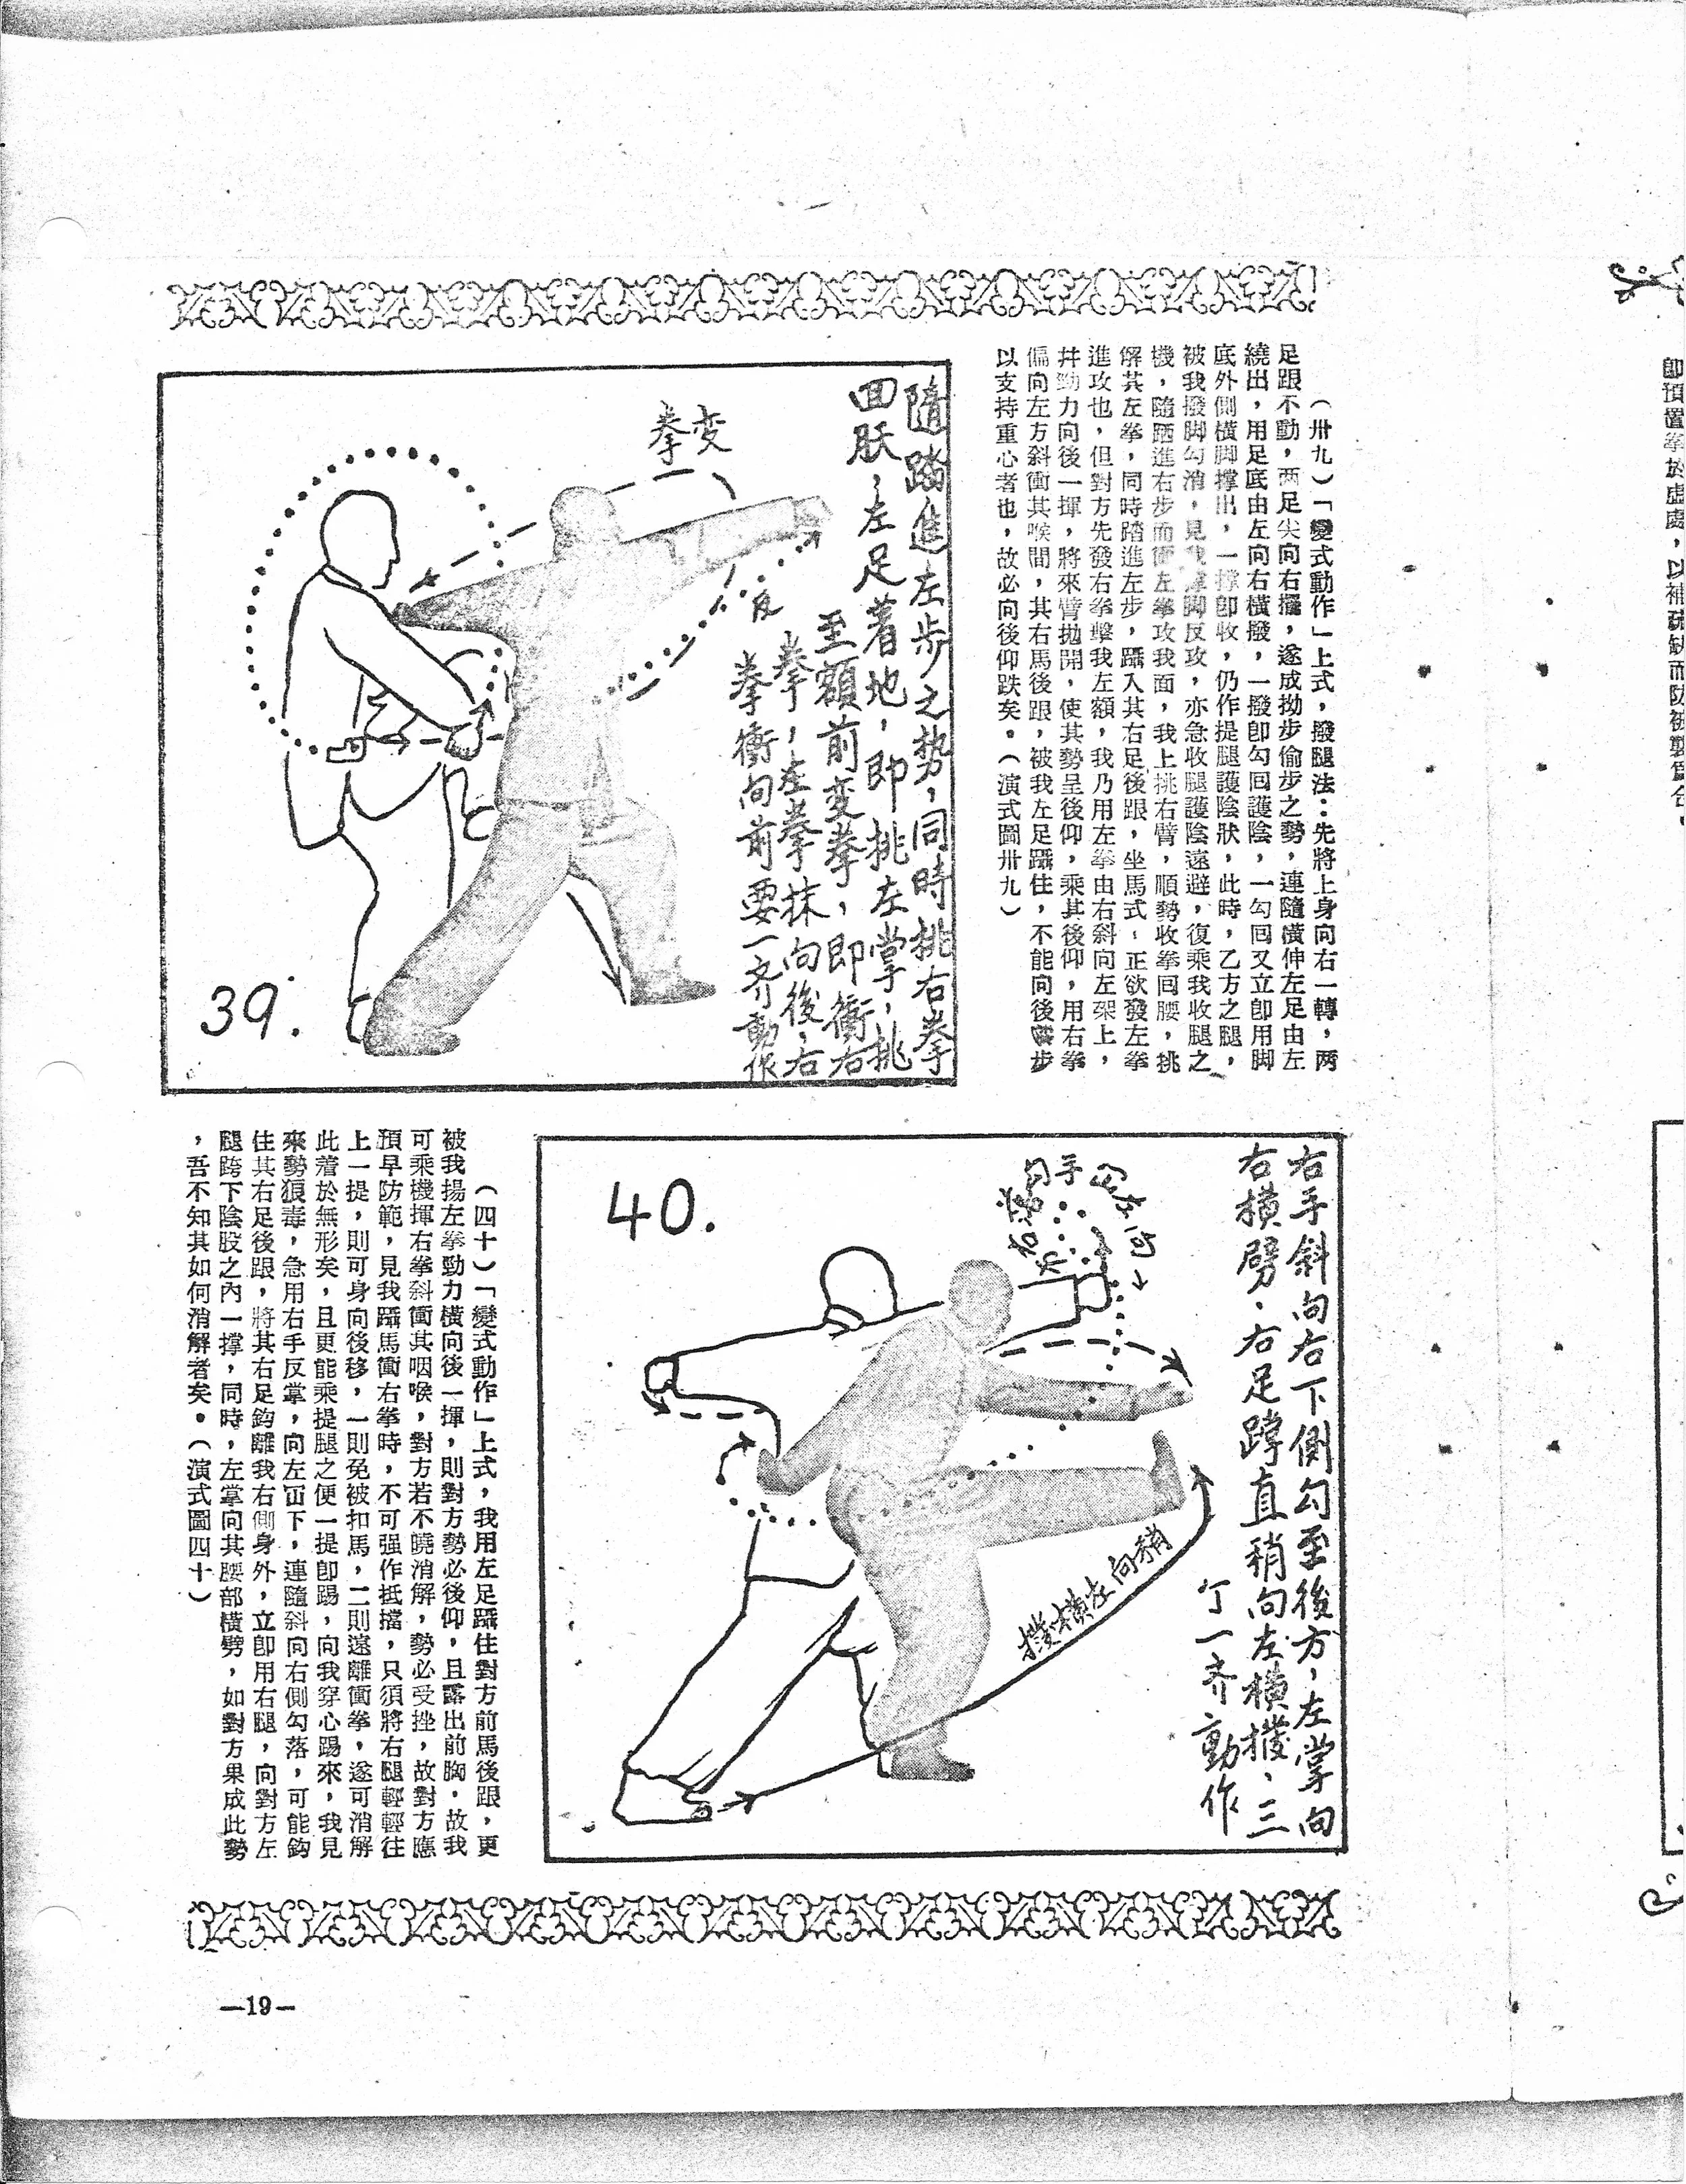 (卅九)「變式動作」上式，撥腿法：先將上身向右一轉，两
足跟不動，两足尖向右擺，遂成拗步偷步之勢，連隨橫伸左足由左
繞出，用足底由左向右橫撥，一撥卽勾回護陰，一勾囘又立卽用脚
底外側橫脚撑出，一撑卽收，仍作提腿護陰狀，此時，乙方之腿，
被我撥脚勾消，見我撑脚反攻，亦急收腿護陰遠避，復乘我收腿之
機，隨踏進右步而衝左拳攻我面，我上挑右臂，順勢收拳囘腰，挑
解其左拳，同時踏進左步，躡入其右足後跟，坐馬式、正欲發左拳
進攻也，但對方先發右拳擊我左額，我乃用左拳由右斜向左架上，
幷勁力向後一揮，將來臂拋開，使其勢呈後仰，乘其後仰，用右拳
偏向左方斜衝其喉間，其右馬後跟，被我左足躡住，不能向後步
以支持重心者也，故必向後仰跌矣。(演式圖卅九)
隨踏進左步之勢，同時挑右拳
回肷，左足着地，即挑左掌，挑
至額前变拳，即衝右
拳，左拳抹向後，右
拳衝向前要一齐動作
变
拳
反
39.
右手斜向右下側勾至後方，左掌向
右橫劈，右足蹲直稍向左橫撥，三
丁一齐動作
40.
勾手
向左
稍向左橫撥
(四十)「變式動作」上式，我用左足躡住對方前馬後跟，更
被我揚左拳勁力橫向後一揮，則對方勢必後仰，且露出前胸，故我
可乘機揮右拳斜衝其咽喉，對方若不曉消解，勢必受挫，故對方應
預早防範，見我躡馬衝右拳時，不可强作抵擋，只須將右腿輕輕往
上一提，則可身向後移，一則免被扣馬，二則遠離衝拳，遂可消解
此着於無形矣，且更能乘提腿之便一提卽踢，向我穿心踢來，我見
來勢狠毒，急用右手反掌，向左下，連隨斜向右側勾落，可能鈎
住其右足後跟，將其右足鈎離我右側身外，立卽用右腿，向對方左
腿跨下陰股之內一撑，同時，左掌向其腰部橫劈，如對方果成此勢
，吾不知其如何消解者矣。(演式圖四十)
—19—